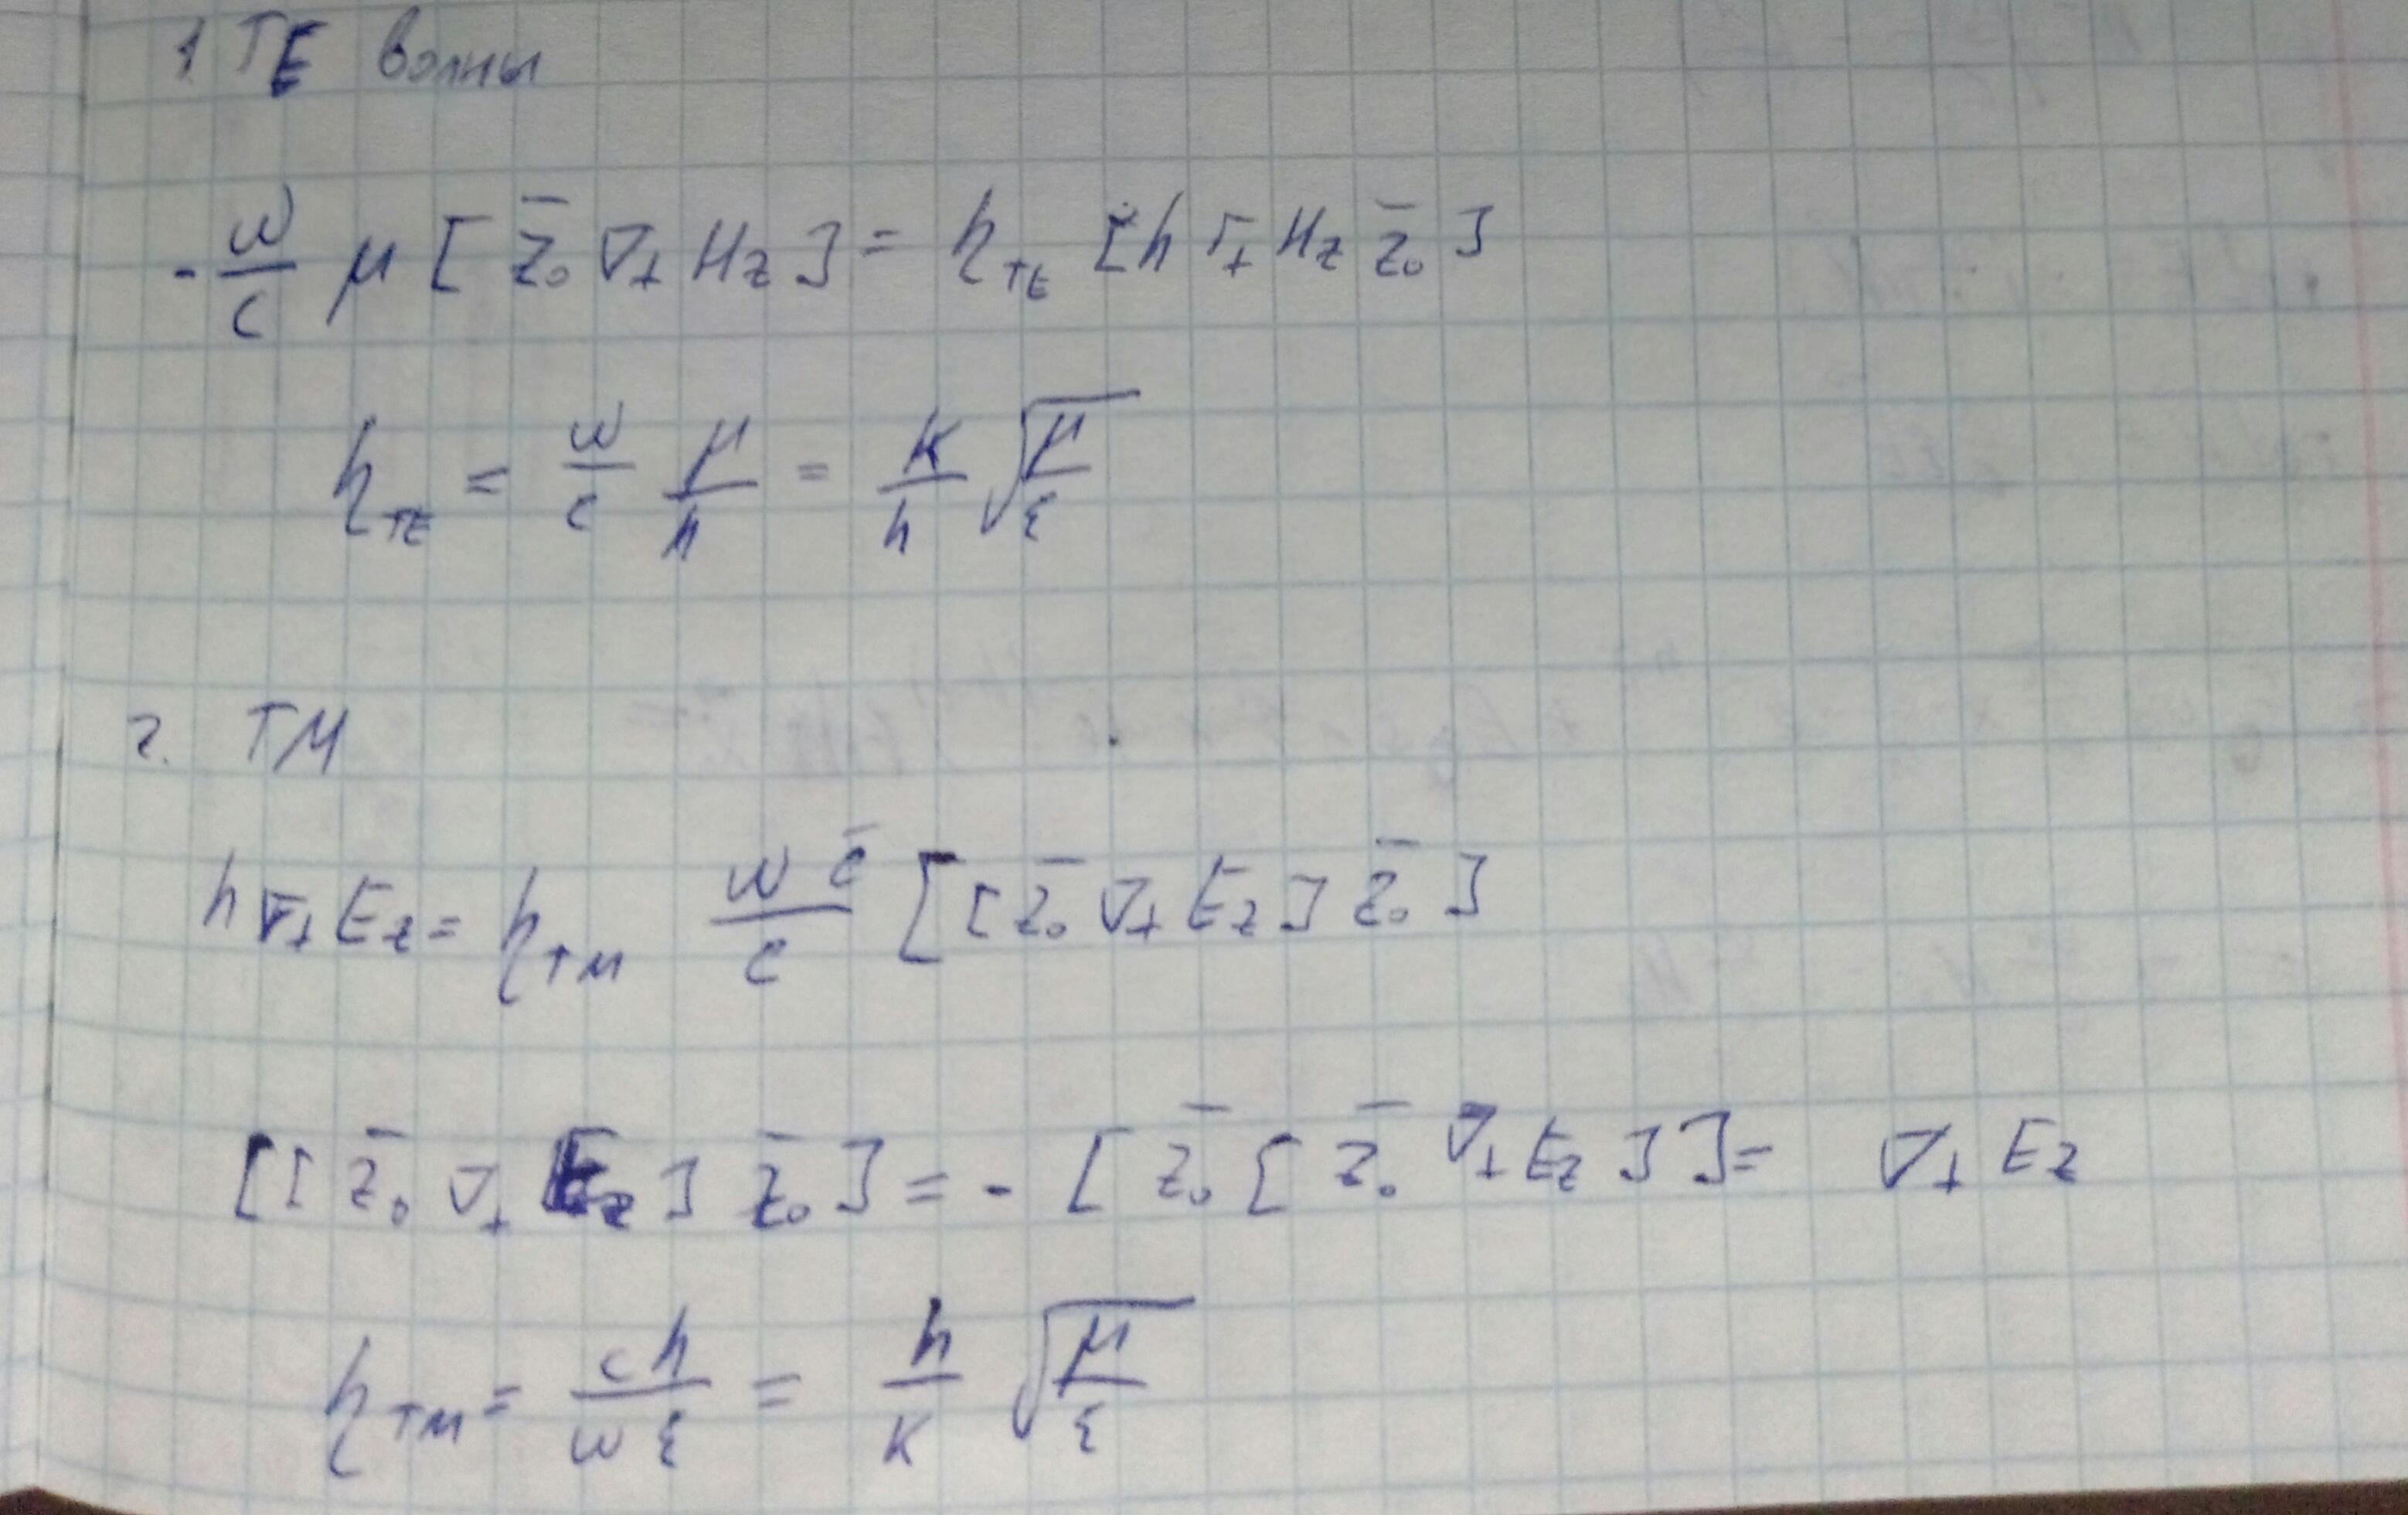 1 TE волны
- ω/c μ [ z̄₀ ∇⊥ Hz ] = η_TE [ h ∇⊥ Hz z̄₀ ]
η_TE = ω/c μ/h = k/h √(μ/ε)
2. TM
h ∇⊥ Ez = η_TM ωε̄/c [ [ z̄₀ ∇⊥ Ez ] z̄₀ ]
[ [ z̄₀ ∇⊥ Ez ] z̄₀ ] = - [ z̄₀ [ z̄₀ ∇⊥ Ez ] ] = ∇⊥ Ez
η_TM = ch/ωε = h/k √(μ/ε)